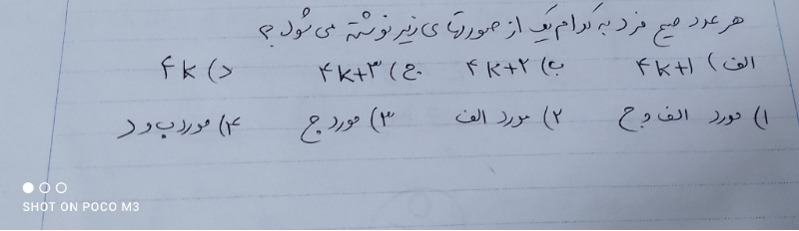 هر عدد صحیح فرد به کدام یک از صورتهای زیر نوشته می شود؟
الف) ۴k+۱ ب) ۴k+۲ ج) ۴k+۳ د) ۴k
۱) مورد الف و ج ۲) مورد الف ۳) مورد ج ۴) مورد ب و د
SHOT ON POCO M3